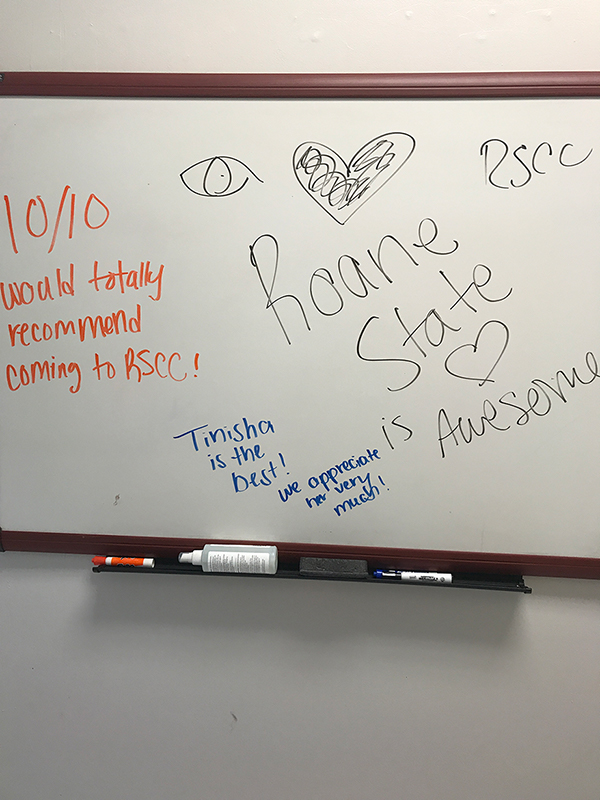 RSCC
10/10
would totally
recommend
coming to RSCC!
Roane
State
is Awesome
Tinisha
is the
best!
we appreciate
her very
much!